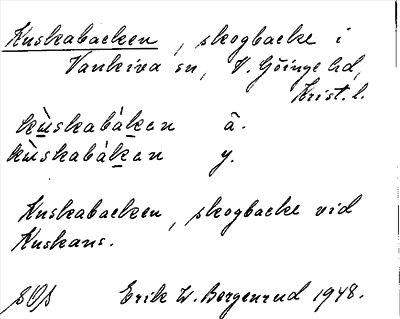 Kuskabacken, skogbacke i
Vankiva sn, V. Göinge hd,
Krist. l.
kùskabáken ä.
kùskabáken y.
Kuskabacken, skogbacke vid
Kuskans.
SOS Erik W. Bergenrud 1948.